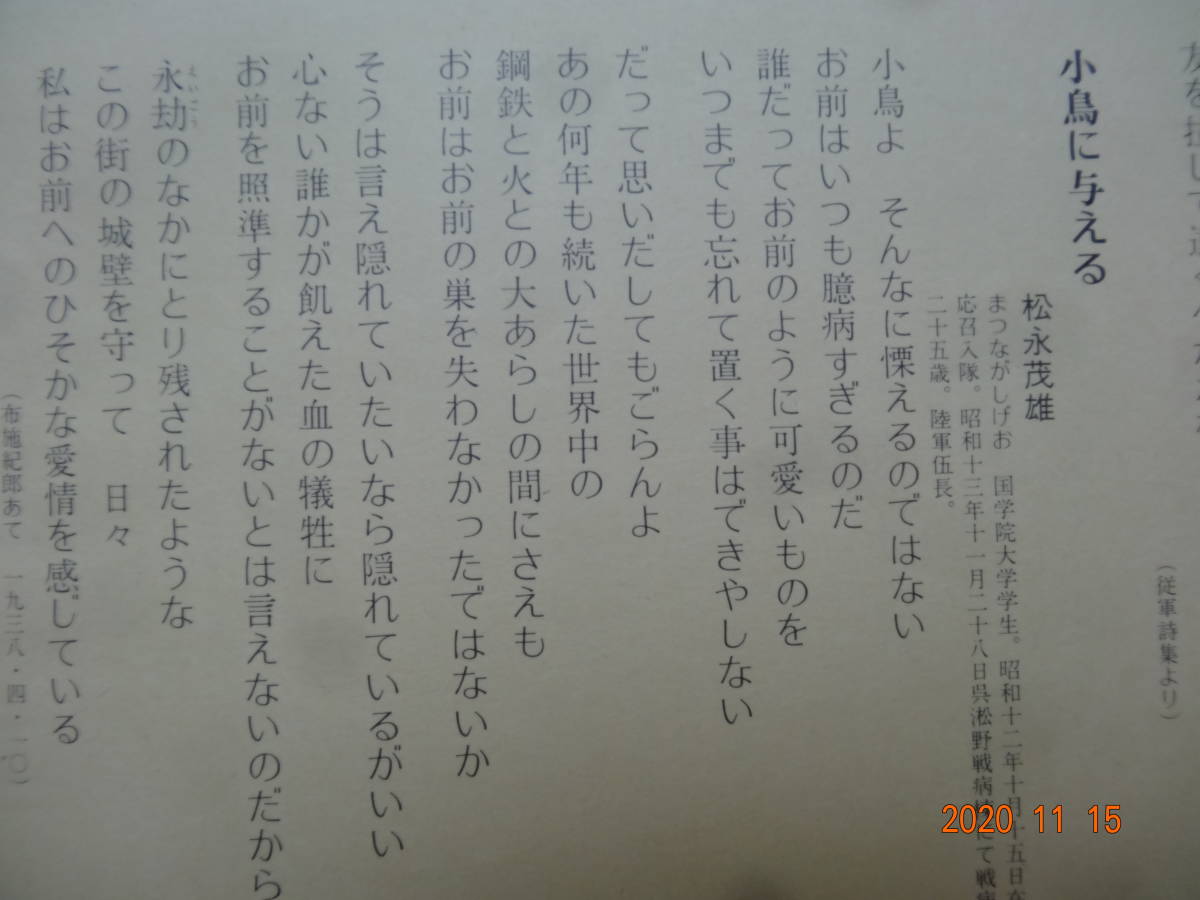 (従軍詩集より)
小鳥に与える
松永茂雄
まつながしげお 国学院大学学生。昭和十二年十月十五日
応召入隊。昭和十三年十一月二十八日呉淞野戦病にて戦
二十五歳。陸軍伍長。
小鳥よ そんなに慄えるのではない
お前はいつも臆病すぎるのだ
誰だってお前のように可愛いものを
いつまでも忘れて置く事はできやしない
だって思いだしてもごらんよ
あの何年も続いた世界中の
鋼鉄と火との大あらしの間にさえも
お前はお前の巣を失わなかったではないか
そうは言え隠れていたいなら隠れているがいい
心ない誰かが飢えた血の犠牲に
お前を照準することがないとは言えないのだから
永劫のなかにとり残されたような
この街の城壁を守って 日々
私はお前へのひそかな愛情を感じている
(布施紀郎あて 一九三八・四・一〇)
2020 11 15